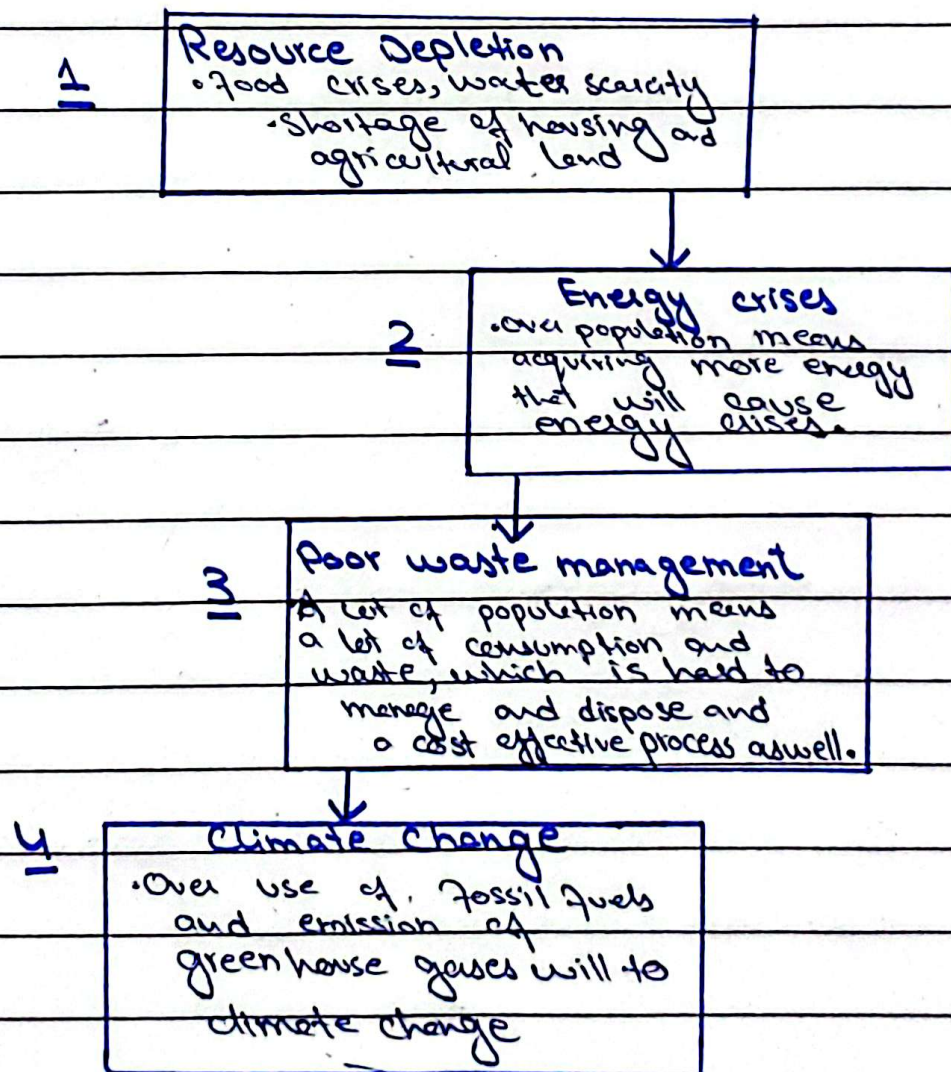 1
Resource Depletion
• Food crises, water scarcity
• Shortage of housing and
agricultural land
2
Energy crises
• Over population means
acquiring more energy
that will cause
energy crises.
3
Poor waste management
A lot of population means
a lot of consumption and
waste, which is hard to
manage and dispose and
a cost effective process aswell.
4
Climate Change
• Over use of fossil fuels
and emission of
greenhouse gases will to
climate change